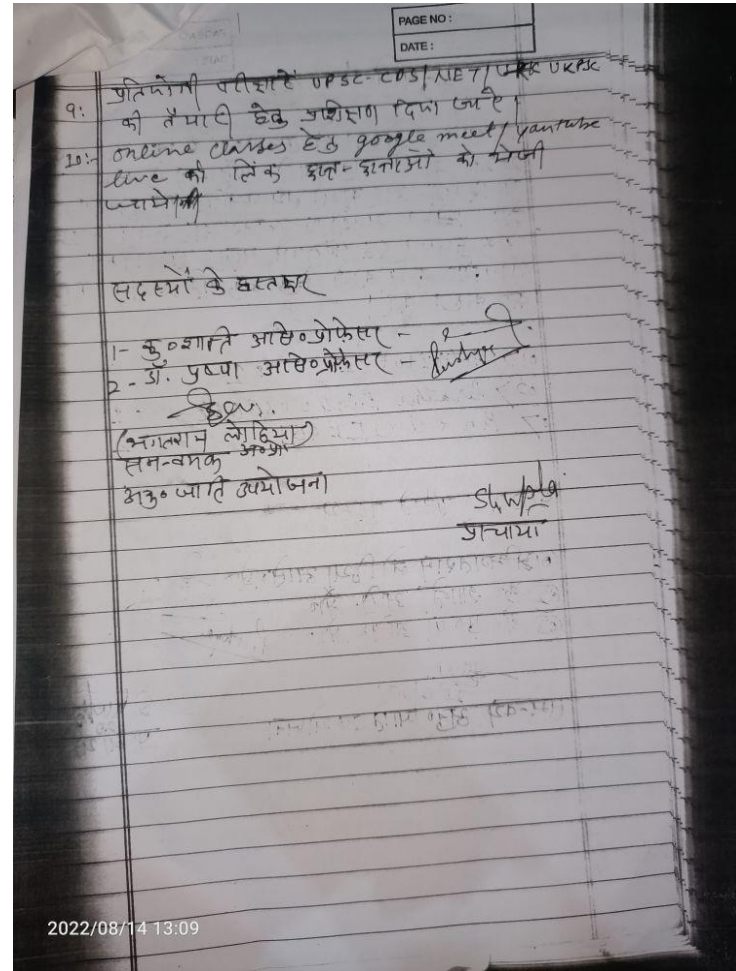 PAGE NO :
DATE :
9: प्रतियोगी परीक्षाएं UPSC-CDS/NET/ UKPSC
की तैयारी हेतु प्रशिक्षण दिया जाए।
10:- online classes हेतु google meet/ youtube
live की लिंक छात्र-छात्राओं को भेजी
जायेगी
सदस्यों के हस्ताक्षर
1- कु० शान्ति असि० प्रोफेसर -
2- डॉ. पुष्पा असि० प्रोफेसर -
(भगतराम लोहिया)
समन्वयक
अनु० जाति उपयोजना
प्राचार्या
2022/08/14 13:09